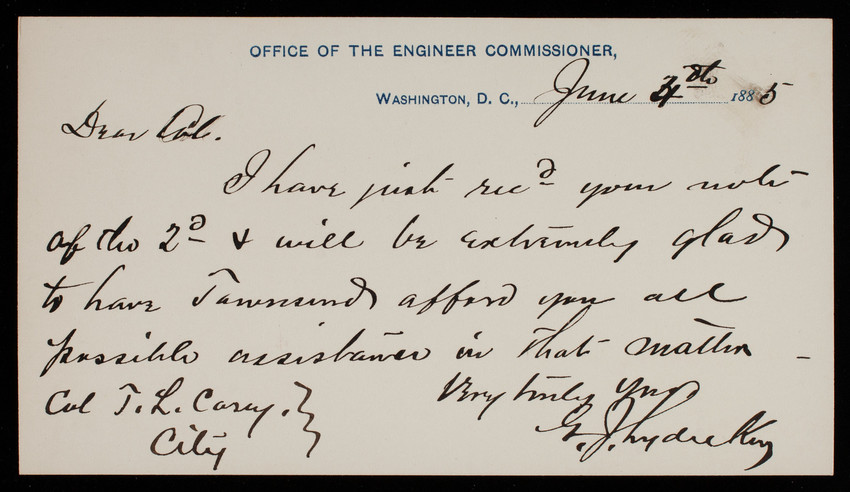 OFFICE OF THE ENGINEER COMMISSIONER,
WASHINGTON, D. C., June 4th 1885
Dear Col.
I have just recd your note
of the 2d & will be extremely glad
to have Townsend afford you all
possible assistance in that matter –
Very truly yrs
G. J. Lydecker
Col T. L. Casey.
City